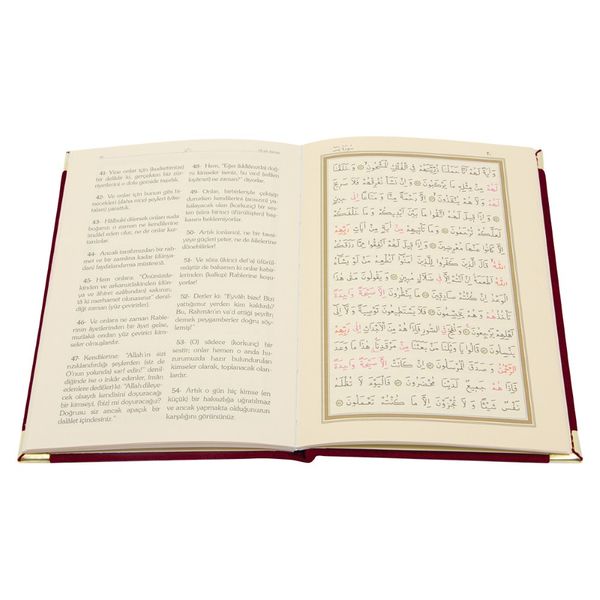 41- Yine onlar için (kudretimize)
bir delildir ki, gerçekten biz zür-
riyetlerini o dolu gemide taşıdık.
42- Ve onlar için bunun gibi bi-
necekleri (daha nice) şeyleri (vası-
taları) yarattık.
43- Hâlbuki dilemek onları suda
boğarız; o zaman ne kendilerine
imdâd eden olur, ne de onlar kur-
tarılırlar.
44- Ancak tarafımızdan bir rah-
met ve bir zamana kadar (dünya-
dan) faydalandırma müstesnâ.
45- Hem onlara: "Önünüzde-
kinden ve arkanızdakinden (dün-
ya ve âhiret azâbından) sakının;
tâ ki merhamet olunasınız" denil-
diği zaman (yüz çevirirler).
46- Ve onlara ne zaman Rableri-
nin âyetlerinden bir âyet gelse,
mutlaka ondan yüz çevirici kim-
seler olmuşlardır.
47- Kendilerine: "Allah'ın sizi
rızıklandırdığı şeylerden (siz de
O'nun yolunda) sarf edin!" denil-
diğinde ise o inkâr edenler, îmân
edenlere dediler ki: "Allah dileye-
cek olsaydı kendisini doyuracağı
bir kimseyi, (biz mi) doyuracağız?
Doğrusu siz ancak apaçık bir
dalâlet içindesiniz."
48- Hem, "Eğer (iddiânızda) doğ-
ru kimseler iseniz, bu vaad (edilen
kıyâmet) ne zaman?" diyorlar.
49- Onlar, birbirleriyle çekişip
dururlarken kendilerini (ansızın) ya-
kalayacak olan (korkunç) bir ses-
ten (sûra birinci üfürülüşten) baş-
kasını beklemiyorlar.
50- Artık (onlar), ne bir tavsi-
yeye güçleri yeter, ne de âilelerine
dönebilirler!
51- Ve sûra (ikinci def'a) üfürül-
müştür de bakarsın ki onlar kabir-
lerinden (kalkıp) Rablerine koşu-
yorlar.
52- Derler ki: "Eyvâh bize! Bizi
yattığımız yerden kim kaldırdı?
Bu, Rahmân'ın va'd ettiği şeydir;
demek peygamberler doğru söyle-
miş!"
53- (O) sâdece (korkunç) bir
sestir; onlar hemen o anda hu-
zurumuzda hazır bulundurulan
kimseler olarak, toplanacak olan-
lardır.
54- Artık o gün hiç kimse (en
küçük) bir haksızlığa uğratılmaz
ve ancak yapmakta olduğunuzun
karşılığını görürsünüz.
وَاٰيَةٌ لَهُمْ اَنَّا حَمَلْنَا ذُرِّيَّتَهُمْ فِي الْفُلْكِ الْمَشْحُونِ وَخَلَقْنَا
لَهُمْ مِنْ مِثْلِهِ مَا يَرْكَبُونَ وَاِنْ نَشَأْ نُغْرِقْهُمْ فَلَا صَرِيخَ
لَهُمْ وَلَا هُمْ يُنْقَذُونَ اِلَّا رَحْمَةً مِنَّا وَمَتَاعًا اِلٰى
حِينٍ وَاِذَا قِيلَ لَهُمُ اتَّقُوا مَا بَيْنَ اَيْدِيكُمْ وَمَا خَلْفَكُمْ
لَعَلَّكُمْ تُرْحَمُونَ وَمَا تَأْتِيهِمْ مِنْ اٰيَةٍ مِنْ اٰيَاتِ رَبِّهِمْ
اِلَّا كَانُوا عَنْهَا مُعْرِضِينَ وَاِذَا قِيلَ لَهُمْ اَنْفِقُوا مِمَّا رَزَقَكُمُ
اللّٰهُ قَالَ الَّذِينَ كَفَرُوا لِلَّذِينَ اٰمَنُوا اَنُطْعِمُ مَنْ لَوْ يَشَاءُ
اللّٰهُ اَطْعَمَهُ اِنْ اَنْتُمْ اِلَّا فِي ضَلَالٍ مُبِينٍ وَيَقُولُونَ مَتٰى هٰذَا
الْوَعْدُ اِنْ كُنْتُمْ صَادِقِينَ مَا يَنْظُرُونَ اِلَّا صَيْحَةً وَاحِدَةً
تَأْخُذُهُمْ وَهُمْ يَخِصِّمُونَ فَلَا يَسْتَطِيعُونَ تَوْصِيَةً وَلَا اِلٰى
اَهْلِهِمْ يَرْجِعُونَ وَنُفِخَ فِي الصُّورِ فَاِذَا هُمْ مِنَ الْاَجْدَاثِ اِلٰى رَبِّهِمْ
يَنْسِلُونَ قَالُوا يَا وَيْلَنَا مَنْ بَعَثَنَا مِنْ مَرْقَدِنَا هٰذَا مَا وَعَدَ
الرَّحْمٰنُ وَصَدَقَ الْمُرْسَلُونَ اِنْ كَانَتْ اِلَّا صَيْحَةً وَاحِدَةً
فَاِذَا هُمْ جَمِيعٌ لَدَيْنَا مُحْضَرُونَ فَالْيَوْمَ لَا تُظْلَمُ
نَفْسٌ شَيْئًا وَلَا تُجْزَوْنَ اِلَّا مَا كُنْتُمْ تَعْمَلُونَ